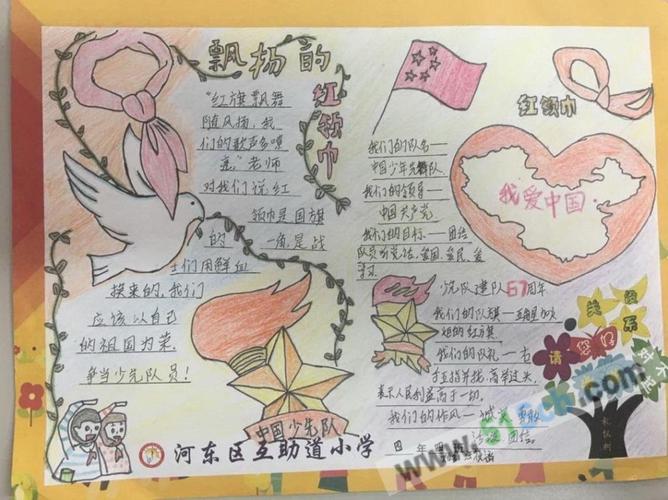 飘扬的
红领巾
"红旗飘舞
随风扬,我
们的歌声多嘹
亮"老师
对我们说红
领巾是国旗
的一角是战
士们用鲜血
换来的,我们
应该以自己
的祖国为荣,
争当少先队员!
中国少先队
河东区互助道小学
红领巾
我爱中国
我们的队名——
中国少年先锋队
我们的领导——
中国共产党
我们的目标——团结
少先队建队67周年
我们的队旗——五角星加火
炬的红旗
我们的队礼——右
手五指并拢,高举过头,
表示人民利益高于一切.
我们的作风——诚实、勇敢
活泼、团结
四年四
请
您好
对不起
www.51sch.com